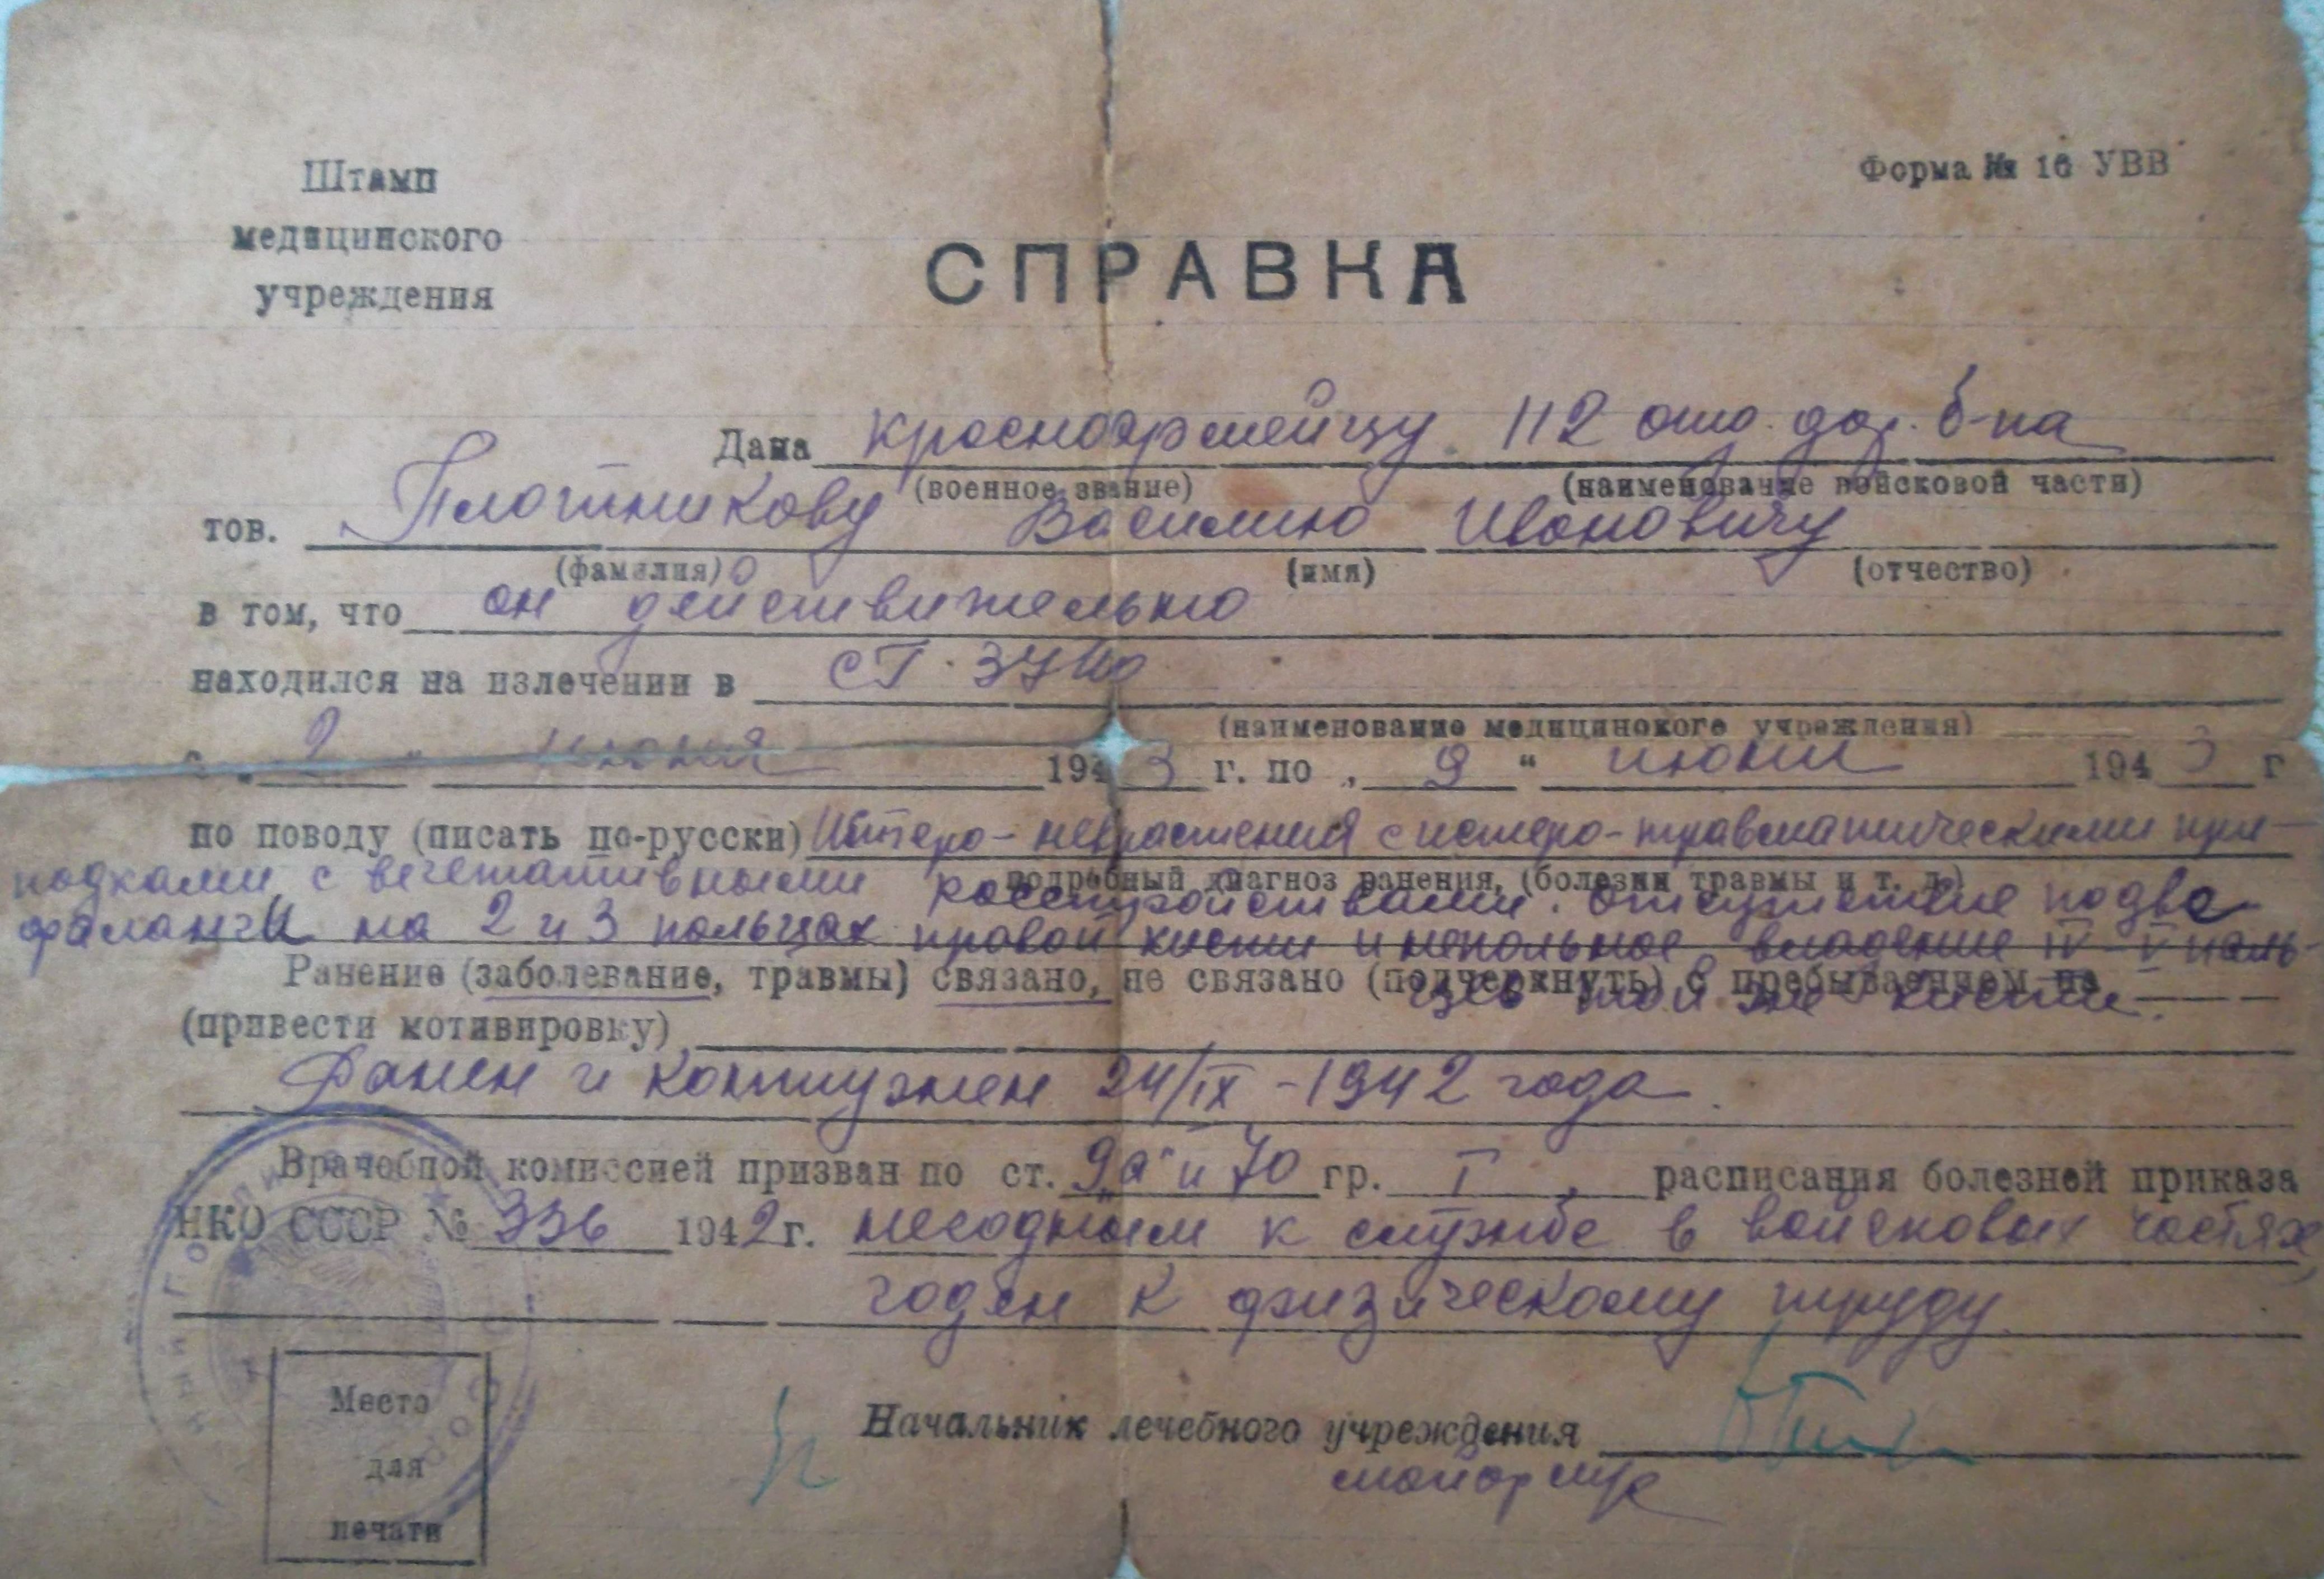 Штамп
медицинского
учреждения
Форма № 16 УВВ
СПРАВКА
Дана красноармейцу 112 отд. дор. б-на
(военное звание) (наименование войсковой части)
тов. Плотникову Василию Ивановичу
(фамилия) (имя) (отчество)
в том, что он действительно
находился на излечении в
(наименование медицинского учреждения)
2 " июня 1943 г. по „ 9 " июня 1943 г
по поводу (писать по-русски) Истеро-неврастения с истеро-травматическими при-
подробный диагноз ранения, (болезни травмы и т. д.)
подками с вегетативными расстройствами. Отсутствие по две
фаланги на 2 и 3 пальцах правой кисти и неполное владение IV V паль-
цев той же кисти.
Ранение (заболевание, травмы) связано, не связано (подчеркнуть) с пребыванием на
(привести мотивировку)
Ранен и контужен 24/IX-1942 года.
Врачебной комиссией призван по ст. 9„а" и 70 гр. I, расписания болезней приказа
НКО СССР № 336 1942 г. негодным к службе в войсковых частях,
годен к физическому труду
Место
для
печати
Начальник лечебного учреждения
майор м/с